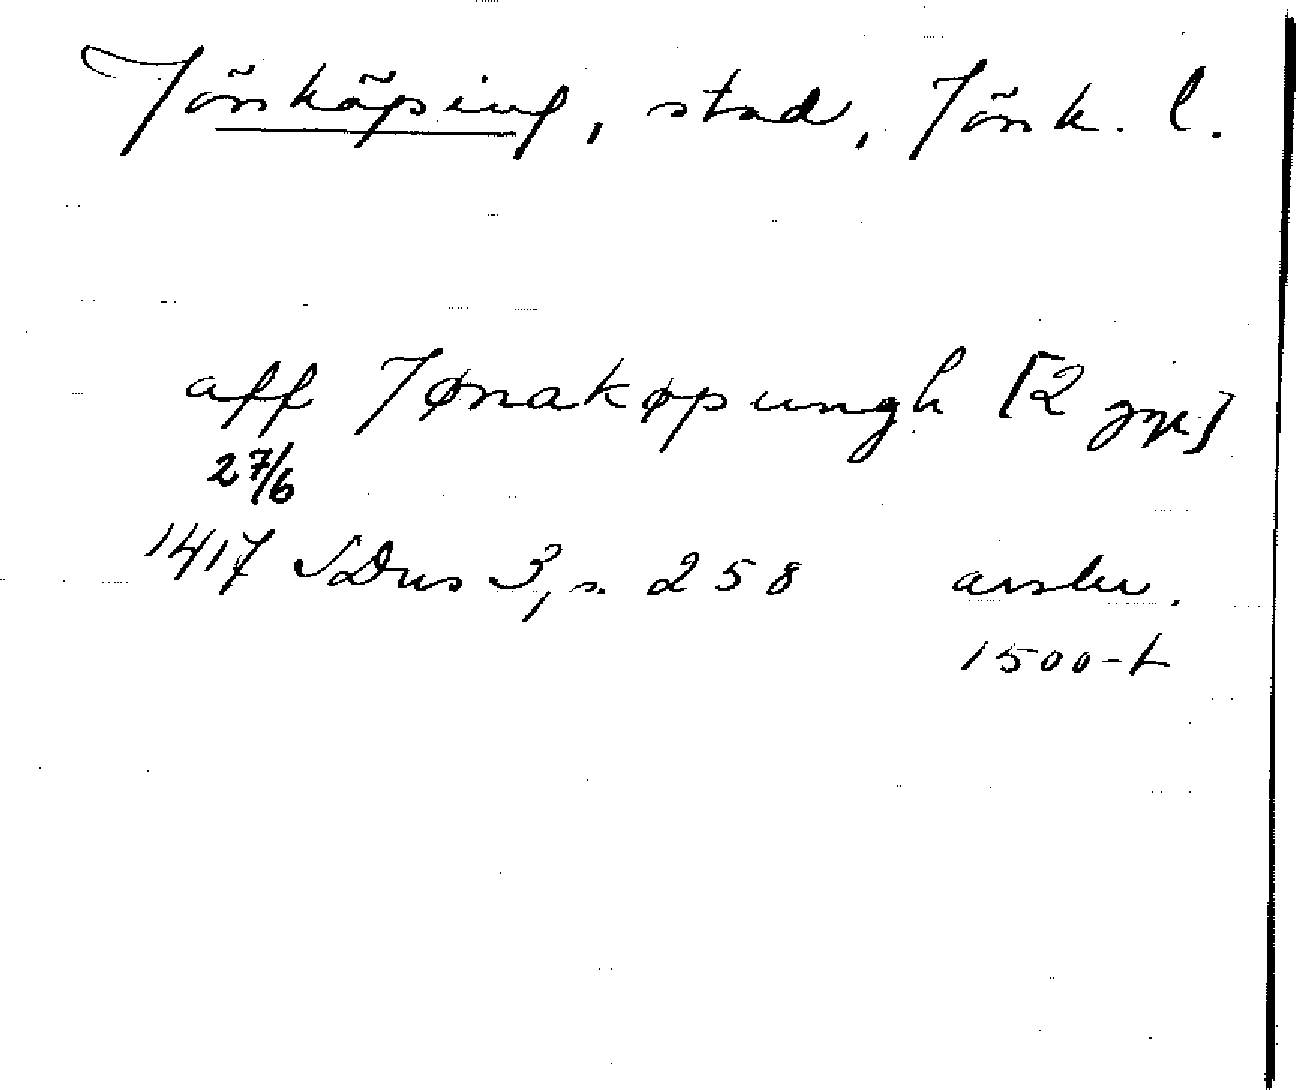 Jönköping, stad, Jönk. l.
aff Jønakøpungh [2 ggr]
27/6
1417 SDns 3, s. 258 avskr.
1500-t